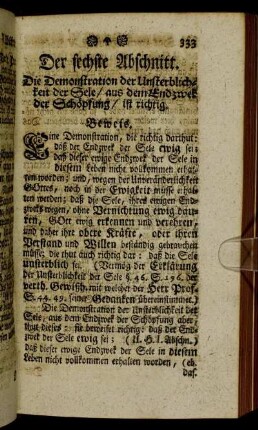 333
Der sechste Abschnitt.
Die Demonstration der Unsterblich-
keit der Sele / aus dem Endzwek
der Schöpfung / ist richtig.
Beweis.
Eine Demonstration, die richtig darthut:
daß der Endzwek der Sele ewig sei:
daß dieser ewige Endzwek der Sele in
diesem Leben nicht vollkommen erhal-
ten worden: und, wegen der Unveränderlichkeit
GOttes, noch in der Ewigkeit müsse erhal-
ten werden; daß die Sele, ihres ewigen End-
zweks wegen, ohne Vernichtung ewig dau-
ren, GOtt ewig erkennen und verehren,
und daher ihre obere Kräfte, oder ihren
Verstand und Willen beständig gebrauchen
müsse; die thut auch richtig dar: daß die Sele
unsterblich sei. (Vermög der Erklärung
der Unsterblichkeit der Sele §. 46. S. 196. der
verth. Gewißh. mit welcher der Herr Prof.
S. 44. 49. seiner Gedanken übereinstimmet.)
Die Demonstration der Unsterblichkeit der
Sele, aus dem Endzwek der Schöpfung aber,
thut dieses: sie beweiset richtig: daß der End-
zwek der Sele ewig sei: (II. H. I. Abschn.)
daß dieser ewige Endzwek der Sele in diesem
Leben nicht vollkommen erhalten worden, (eb.
das.